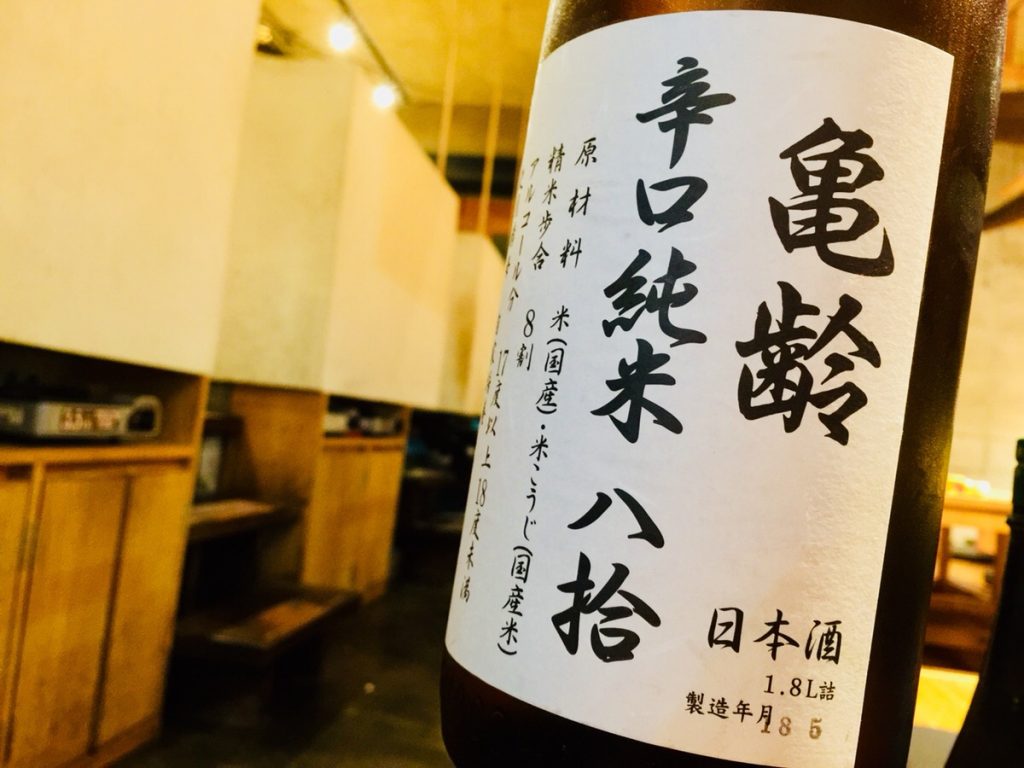 亀齢
辛口純米 八拾
原材料 米(国産)・米こうじ(国産米)
精米歩合 8割
アルコール分 17度以上18度未満
日本酒
1.8L詰
製造年月18 5